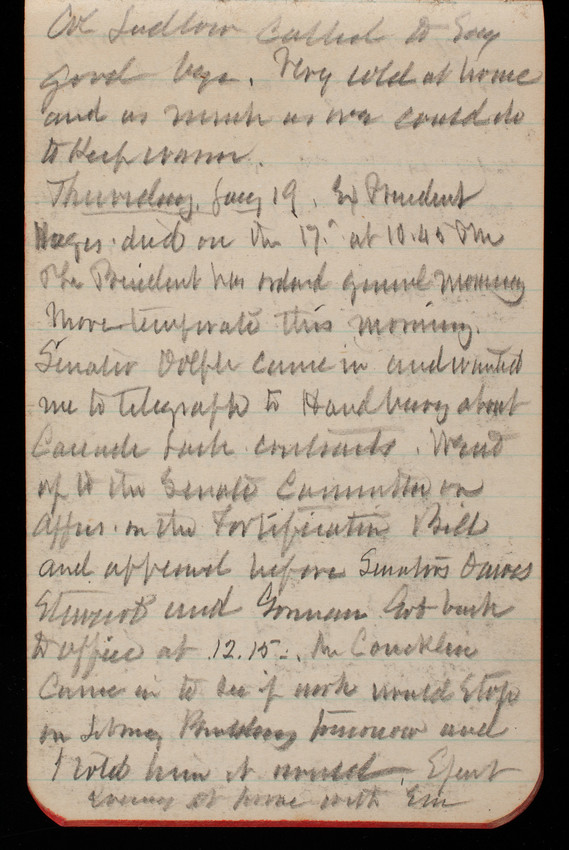 Col Ludlow called to say
good bye. Very cold at home
and as much as we could do
to keep warm.
Thursday, Jany 19. Ex President
Hayes died on the 17" at 10.45 PM
The President has ordered general mourning
More temperate this morning.
Senator Dolph came in and wanted
me to telegraph to Handbury about
Cascade Lock contracts. Went
up to the Senate Committee on
Affrs. on the Fortification Bill
and appeared before Senators Dawes
Stewart and Gorman Got back
to office at 12.15. Mr Concklin
came in to see if work would stop
on Library Building tomorrow and
I told him it would. Spent
Evening at home with Em